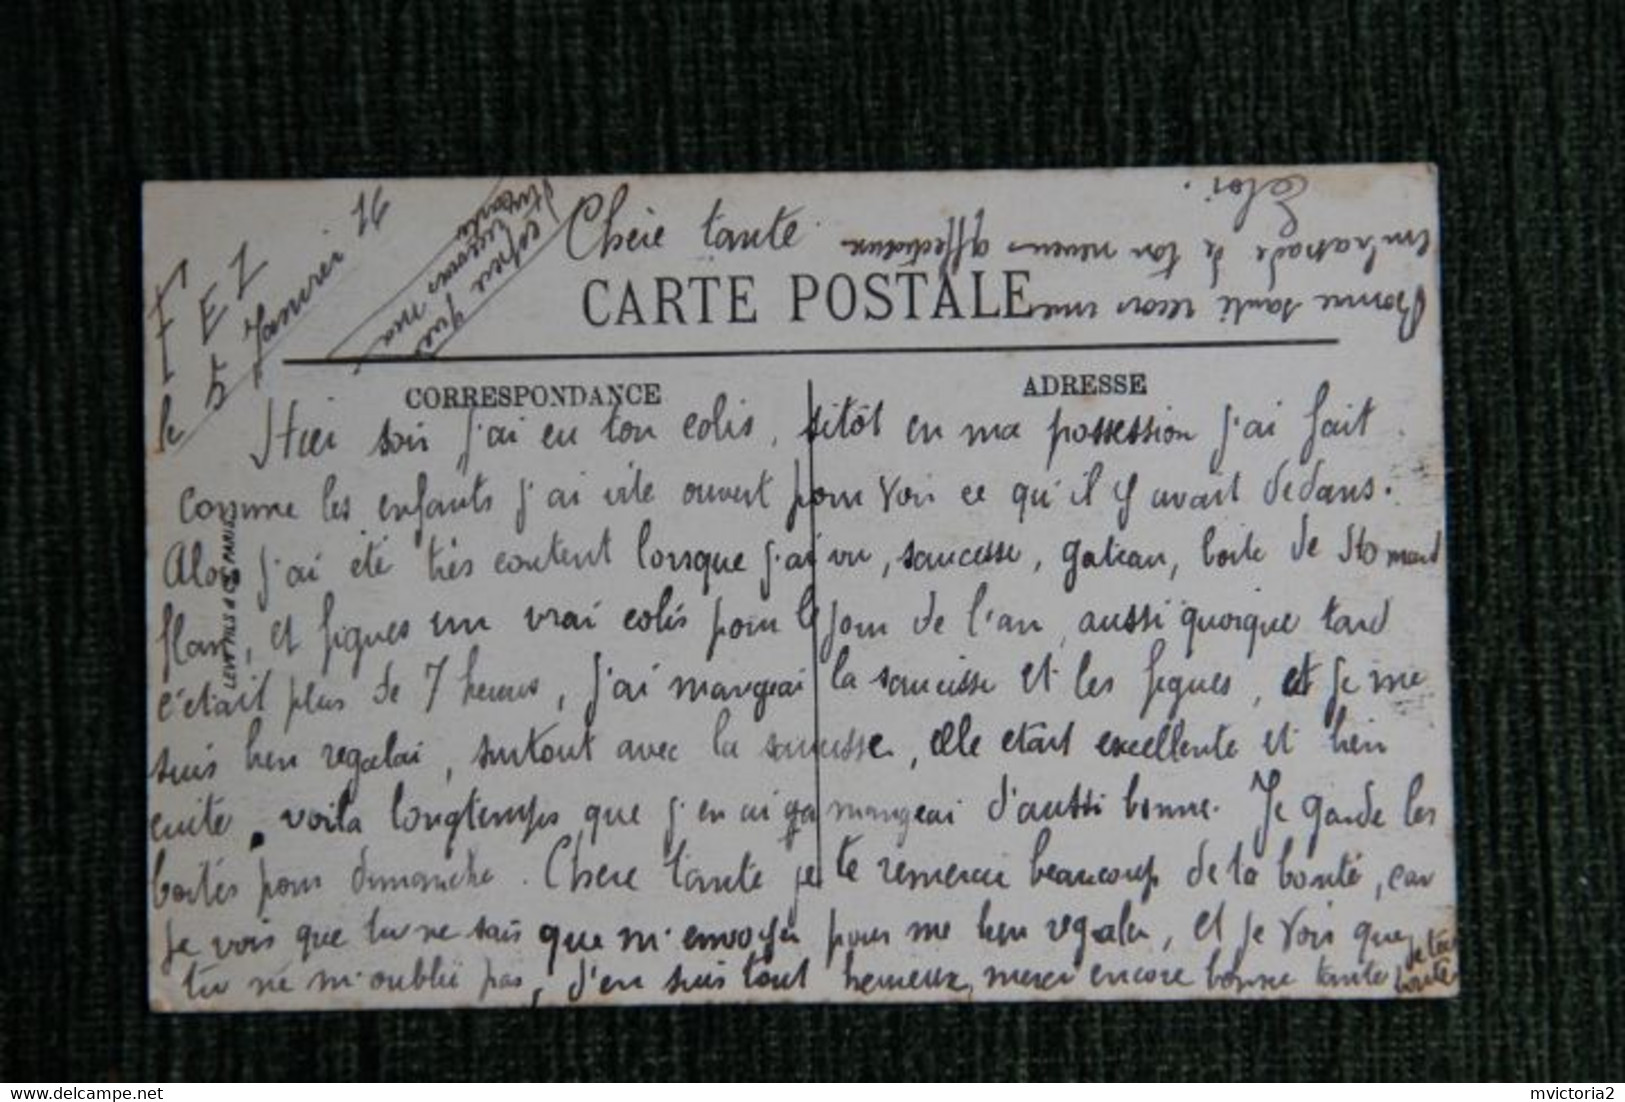 FEZ
le 5 Janvier 16
Chère tante
CARTE POSTALE
CORRESPONDANCE
ADRESSE
Hier soir j'ai eu ton colis, sitôt en ma possession j'ai fait
comme les enfants j'ai vite ouvert pour voir ce qu'il y avait dedans.
Alors j'ai été très content lorsque j'ai vu, saucisse, gateau, boite de
flan, et figues un vrai colis pour le jour de l'an, aussi quoique tard
c'était plus de 7 heures, j'ai mangeai la saucisse et les figues, et je me
suis bien regalai, surtout avec la saucisse, elle etait excellente et bien
cuite, voila longtemps que j'en ai pa mangeai d'aussi bonne. Je garde les
boites pour dimanche. Chère tante je te remercie beaucoup de ta bonté, car
je vois que tu ne sais que m'envoyer pour me bien regaler, et je vois que
tu ne m'oublie pas, j'en suis tout heureux, merci encore bonne tante
bonne santé recois une
embrassade de ton neveu affectueux
Eloi.
LEVY FILS & Cie PARIS
mvictoria2